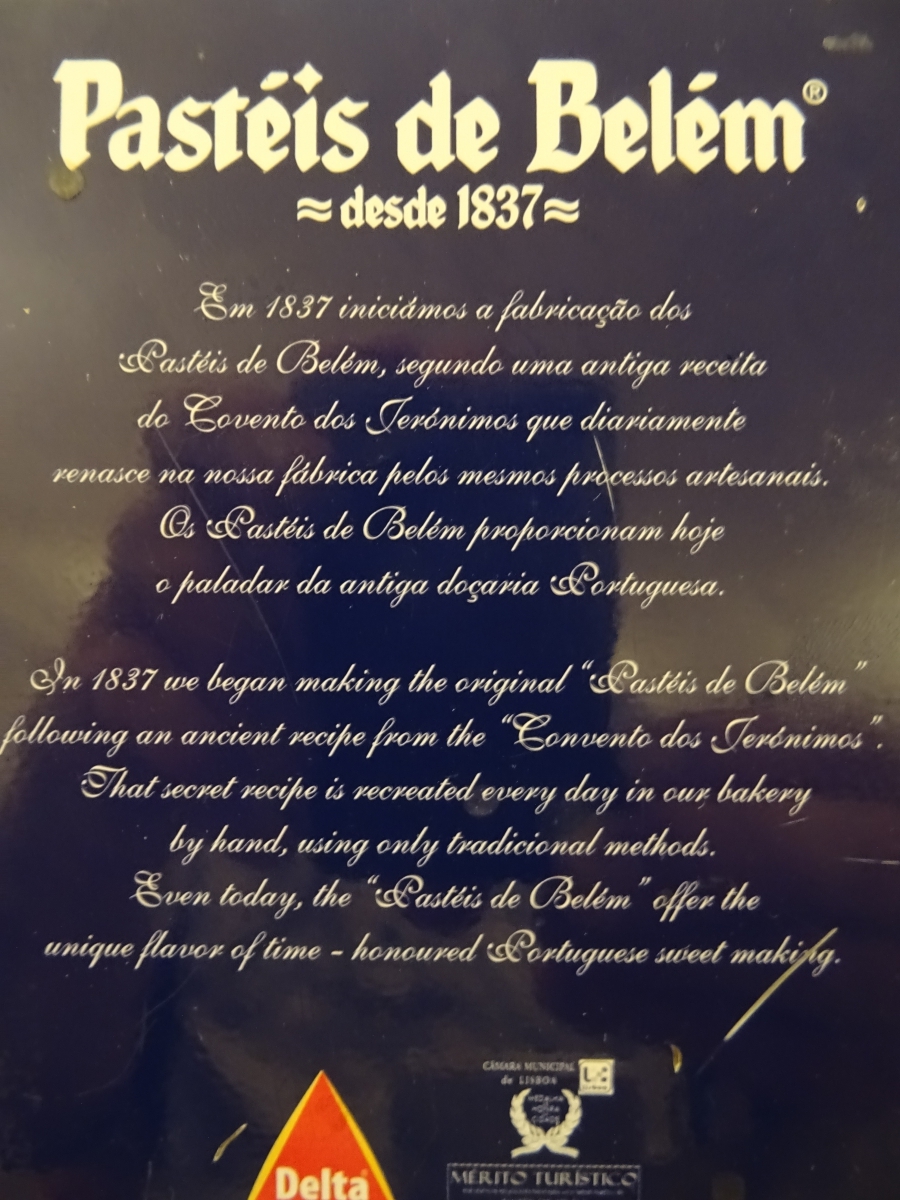 Pastéis de Belém®
≈desde 1837≈
Em 1837 iniciámos a fabricação dos
Pastéis de Belém, segundo uma antiga receita
do Covento dos Jerónimos que diariamente
renasce na nossa fábrica pelos mesmos processos artesanais.
Os Pastéis de Belém proporcionam hoje
o paladar da antiga doçaria Portuguesa.
In 1837 we began making the original “Pastéis de Belém”
following an ancient recipe from the “Convento dos Jerónimos”.
That secret recipe is recreated every day in our bakery
by hand, using only tradicional methods.
Even today, the “Pastéis de Belém” offer the
unique flavor of time - honoured Portuguese sweet making.
CÂMARA MUNICIPAL
de LISBOA
MEDALHA
HONRA
CIDADE
Delta
MÉRITO TURÍSTICO